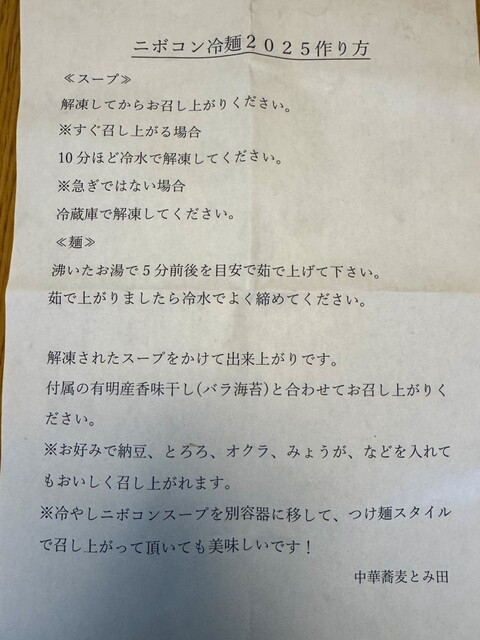 ニボコン冷麺２０２５作り方
≪スープ≫
解凍してからお召し上がりください。
※すぐ召し上がる場合
10分ほど冷水で解凍してください。
※急ぎではない場合
冷蔵庫で解凍してください。
≪麺≫
沸いたお湯で５分前後を目安で茹で上げて下さい。
茹で上がりましたら冷水でよく締めてください。
解凍されたスープをかけて出来上がりです。
付属の有明産香味干し(バラ海苔)と合わせてお召し上がりく
ださい。
※お好みで納豆、とろろ、オクラ、みょうが、などを入れて
もおいしく召し上がれます。
※冷やしニボコンスープを別容器に移して、つけ麺スタイル
で召し上がって頂いても美味しいです！
中華蕎麦とみ田